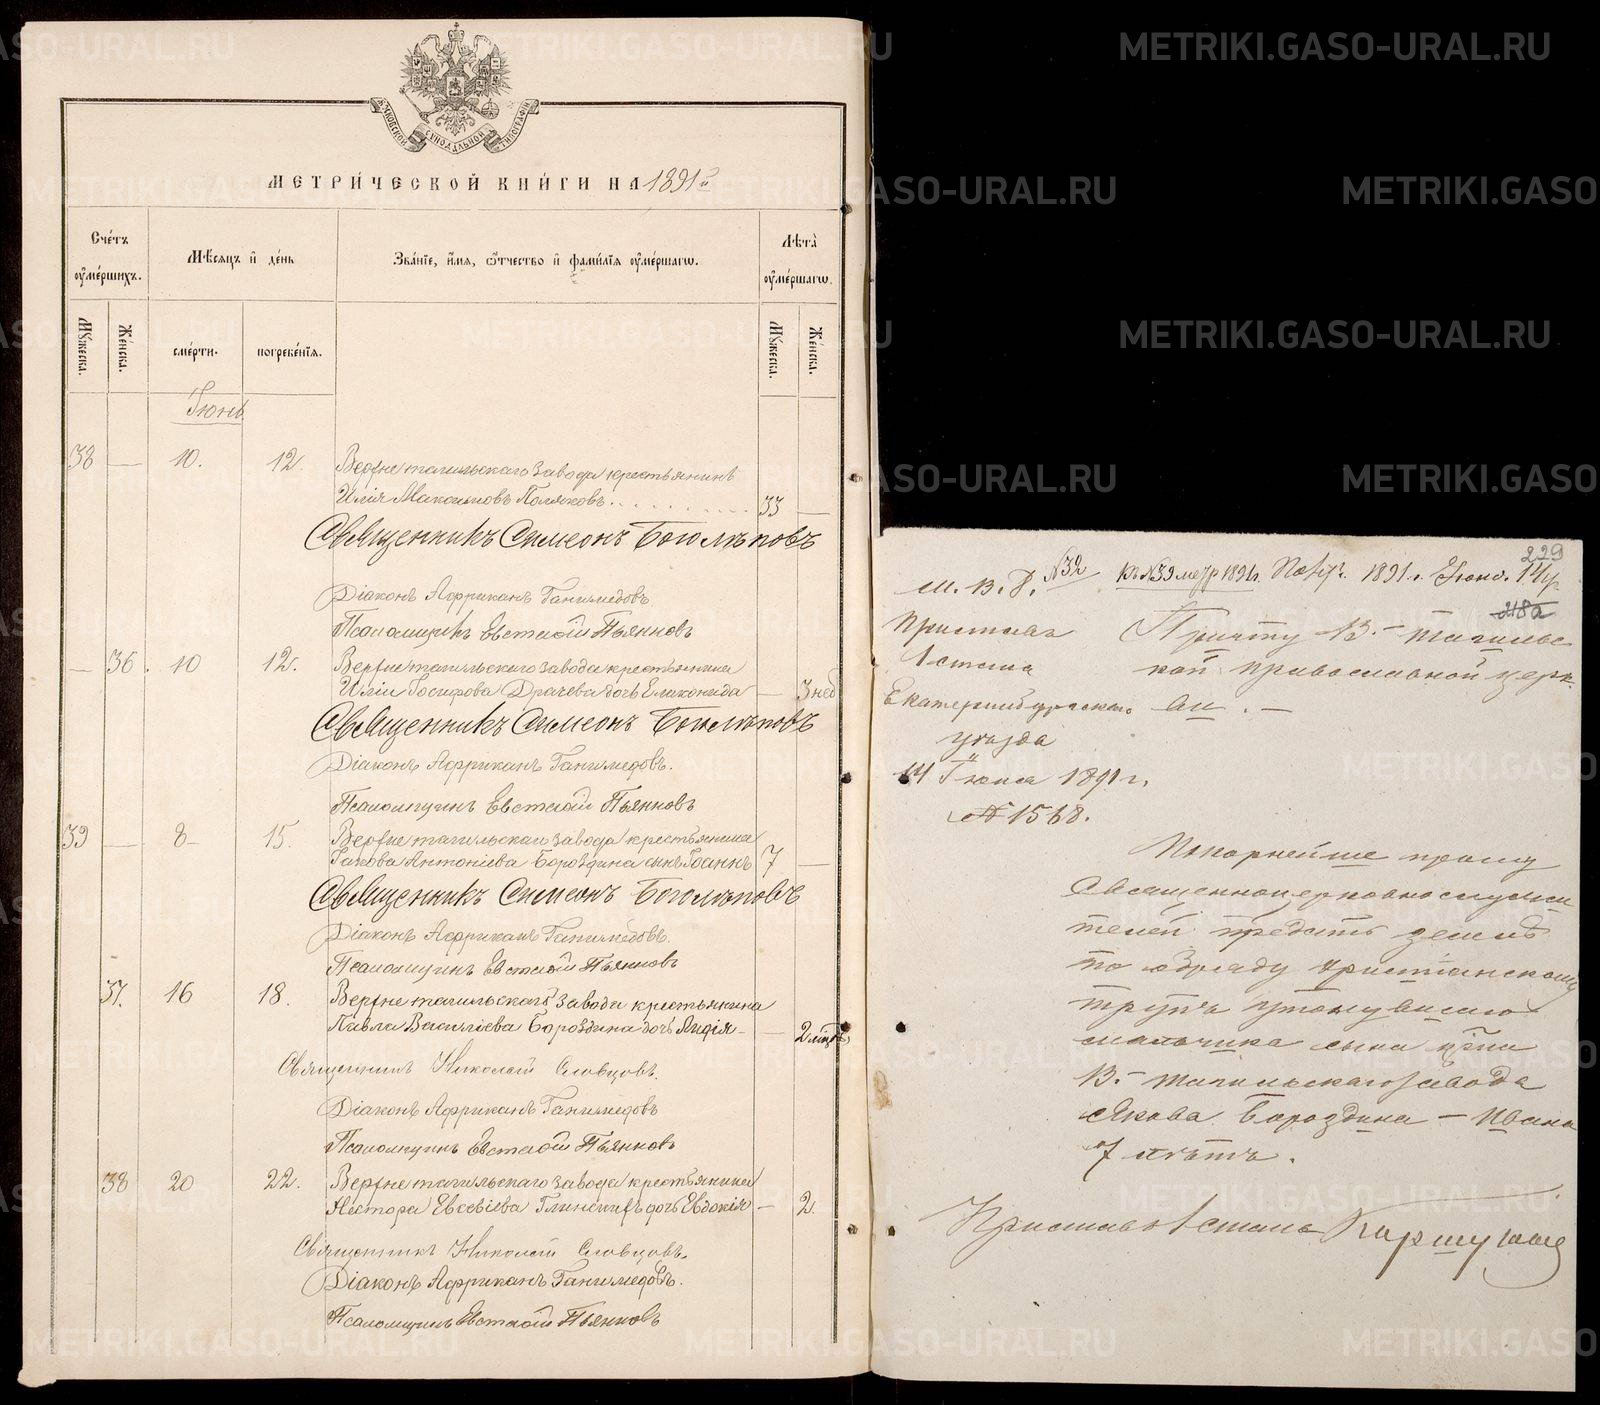 МОСКОВСКОЙ СѴНОДАЛЬНОЙ ТИПОГРАФІИ
МЕТРИ́ЧЕСКОЙ КНИ́ГИ НА 1891 г.
Сче́тъ ᲂу҆ме́ршихъ.
Мѣ́сѧцъ и҆ де́нь
Зва́нїе, и҆́мѧ, ѻ҆́тчество и҆ фами́лїѧ ᲂу҆ме́ршагѡ.
Лѣта̀ ᲂу҆ме́ршагѡ.
Мꙋ́жеска.
Же́нска.
сме́рти.
погребе́нїѧ.
Мꙋ́жеска.
Же́нска.
Іюнь
38 — 10. 12. Верхнетагильскаго завода крестьянинъ
Илія Максимовъ Поляковъ . . . . . . . . 33 —
Священникъ Симеонъ Боголѣповъ
Діаконъ Африканъ Ганимедовъ
Псаломщикъ Евстафій Пьянковъ
— 36. 10 12. Верхнетагильскаго завода крестьянина
Иліи Іосифова Драчева дочь Еликонида — 3 нед
Священникъ Симеонъ Боголѣповъ
Діаконъ Африканъ Ганимедовъ.
Псаломщикъ Евстафій Пьянковъ
39 — 8 15. Верхнетагильскаго завода крестьянина
Іакова Антоніева Бороздина сынъ Іоаннъ 7 —
Священникъ Симеонъ Боголѣповъ
Діаконъ Африканъ Ганимедовъ.
Псаломщикъ Евстафій Пьянковъ
37. 16 18. Верхнетагильскаго завода крестьянина
Павла Василіева Бороздина дочь Лидія — — 2 мѣс.
Священникъ Николай Словцовъ.
Діаконъ Африканъ Ганимедовъ
Псаломщикъ Евстафій Пьянковъ
38 20 22. Верхнетагильскаго завода крестьянина
Нестора Евсевіева Глинскихъ дочь Евдокія — 2.
Священникъ Николай Словцовъ.
Діаконъ Африканъ Ганимедовъ.
Псаломщикъ Евстафій Пьянковъ
229
№ 32 къ № 39 метр 1891 г. Получ. 1891 г. Іюня 14 у.
218а
М. В. Д.
Пристава
1 стана
Екатеринбургскаго
уѣзда
14 Іюня 1891 г.
№ 1568.
Причту В.-тагильс
кой православной церк
ви. —
Покорнейше прошу
священноцерковнослужи
телей предать землѣ
по обряду христіанскому
трупъ утонувшаго
мальчика сына кр-на
В.-тагильскаго завода
Якова Бороздина — Ивана
7 лѣтъ.
Приставъ 1 стана
METRIKI.GASO-URAL.RU